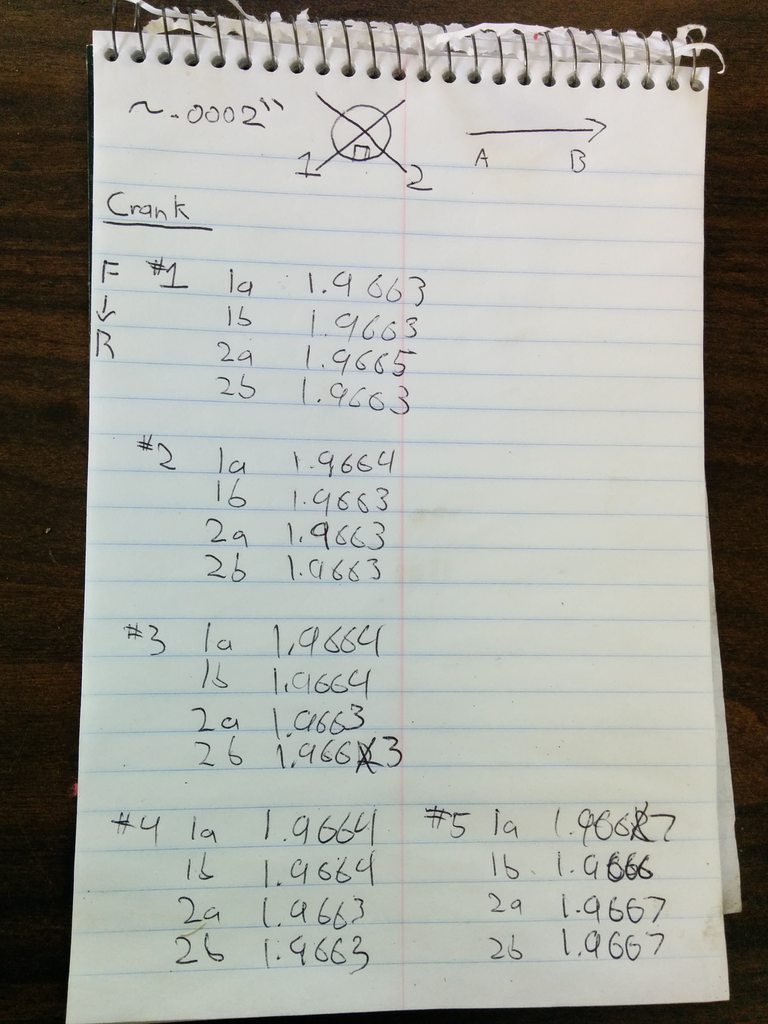 ~.0002"
1 2
A B
Crank
F ↓ R
#1 1a 1.9663
1b 1.9663
2a 1.9665
2b 1.9663
#2 1a 1.9664
1b 1.9663
2a 1.9663
2b 1.9663
#3 1a 1.9664
1b 1.9664
2a 1.9663
2b 1.9663
#4 1a 1.9664
1b 1.9664
2a 1.9663
2b 1.9663
#5 1a 1.9667
1b. 1.9666
2a 1.9667
2b 1.9667